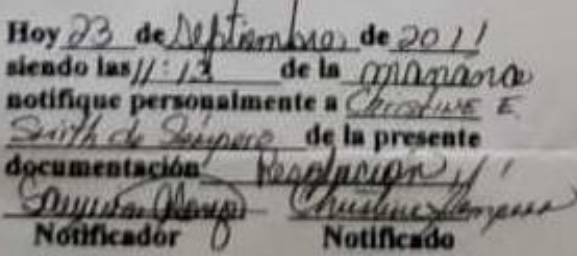 Hoy 23 de Septiembre, de 2011
siendo las 11:12 de la mañana
notifique personalmente a Christine E.
Smith de Sempero de la presente
documentación Resolución
Christine Sempero
Notificador Notificado